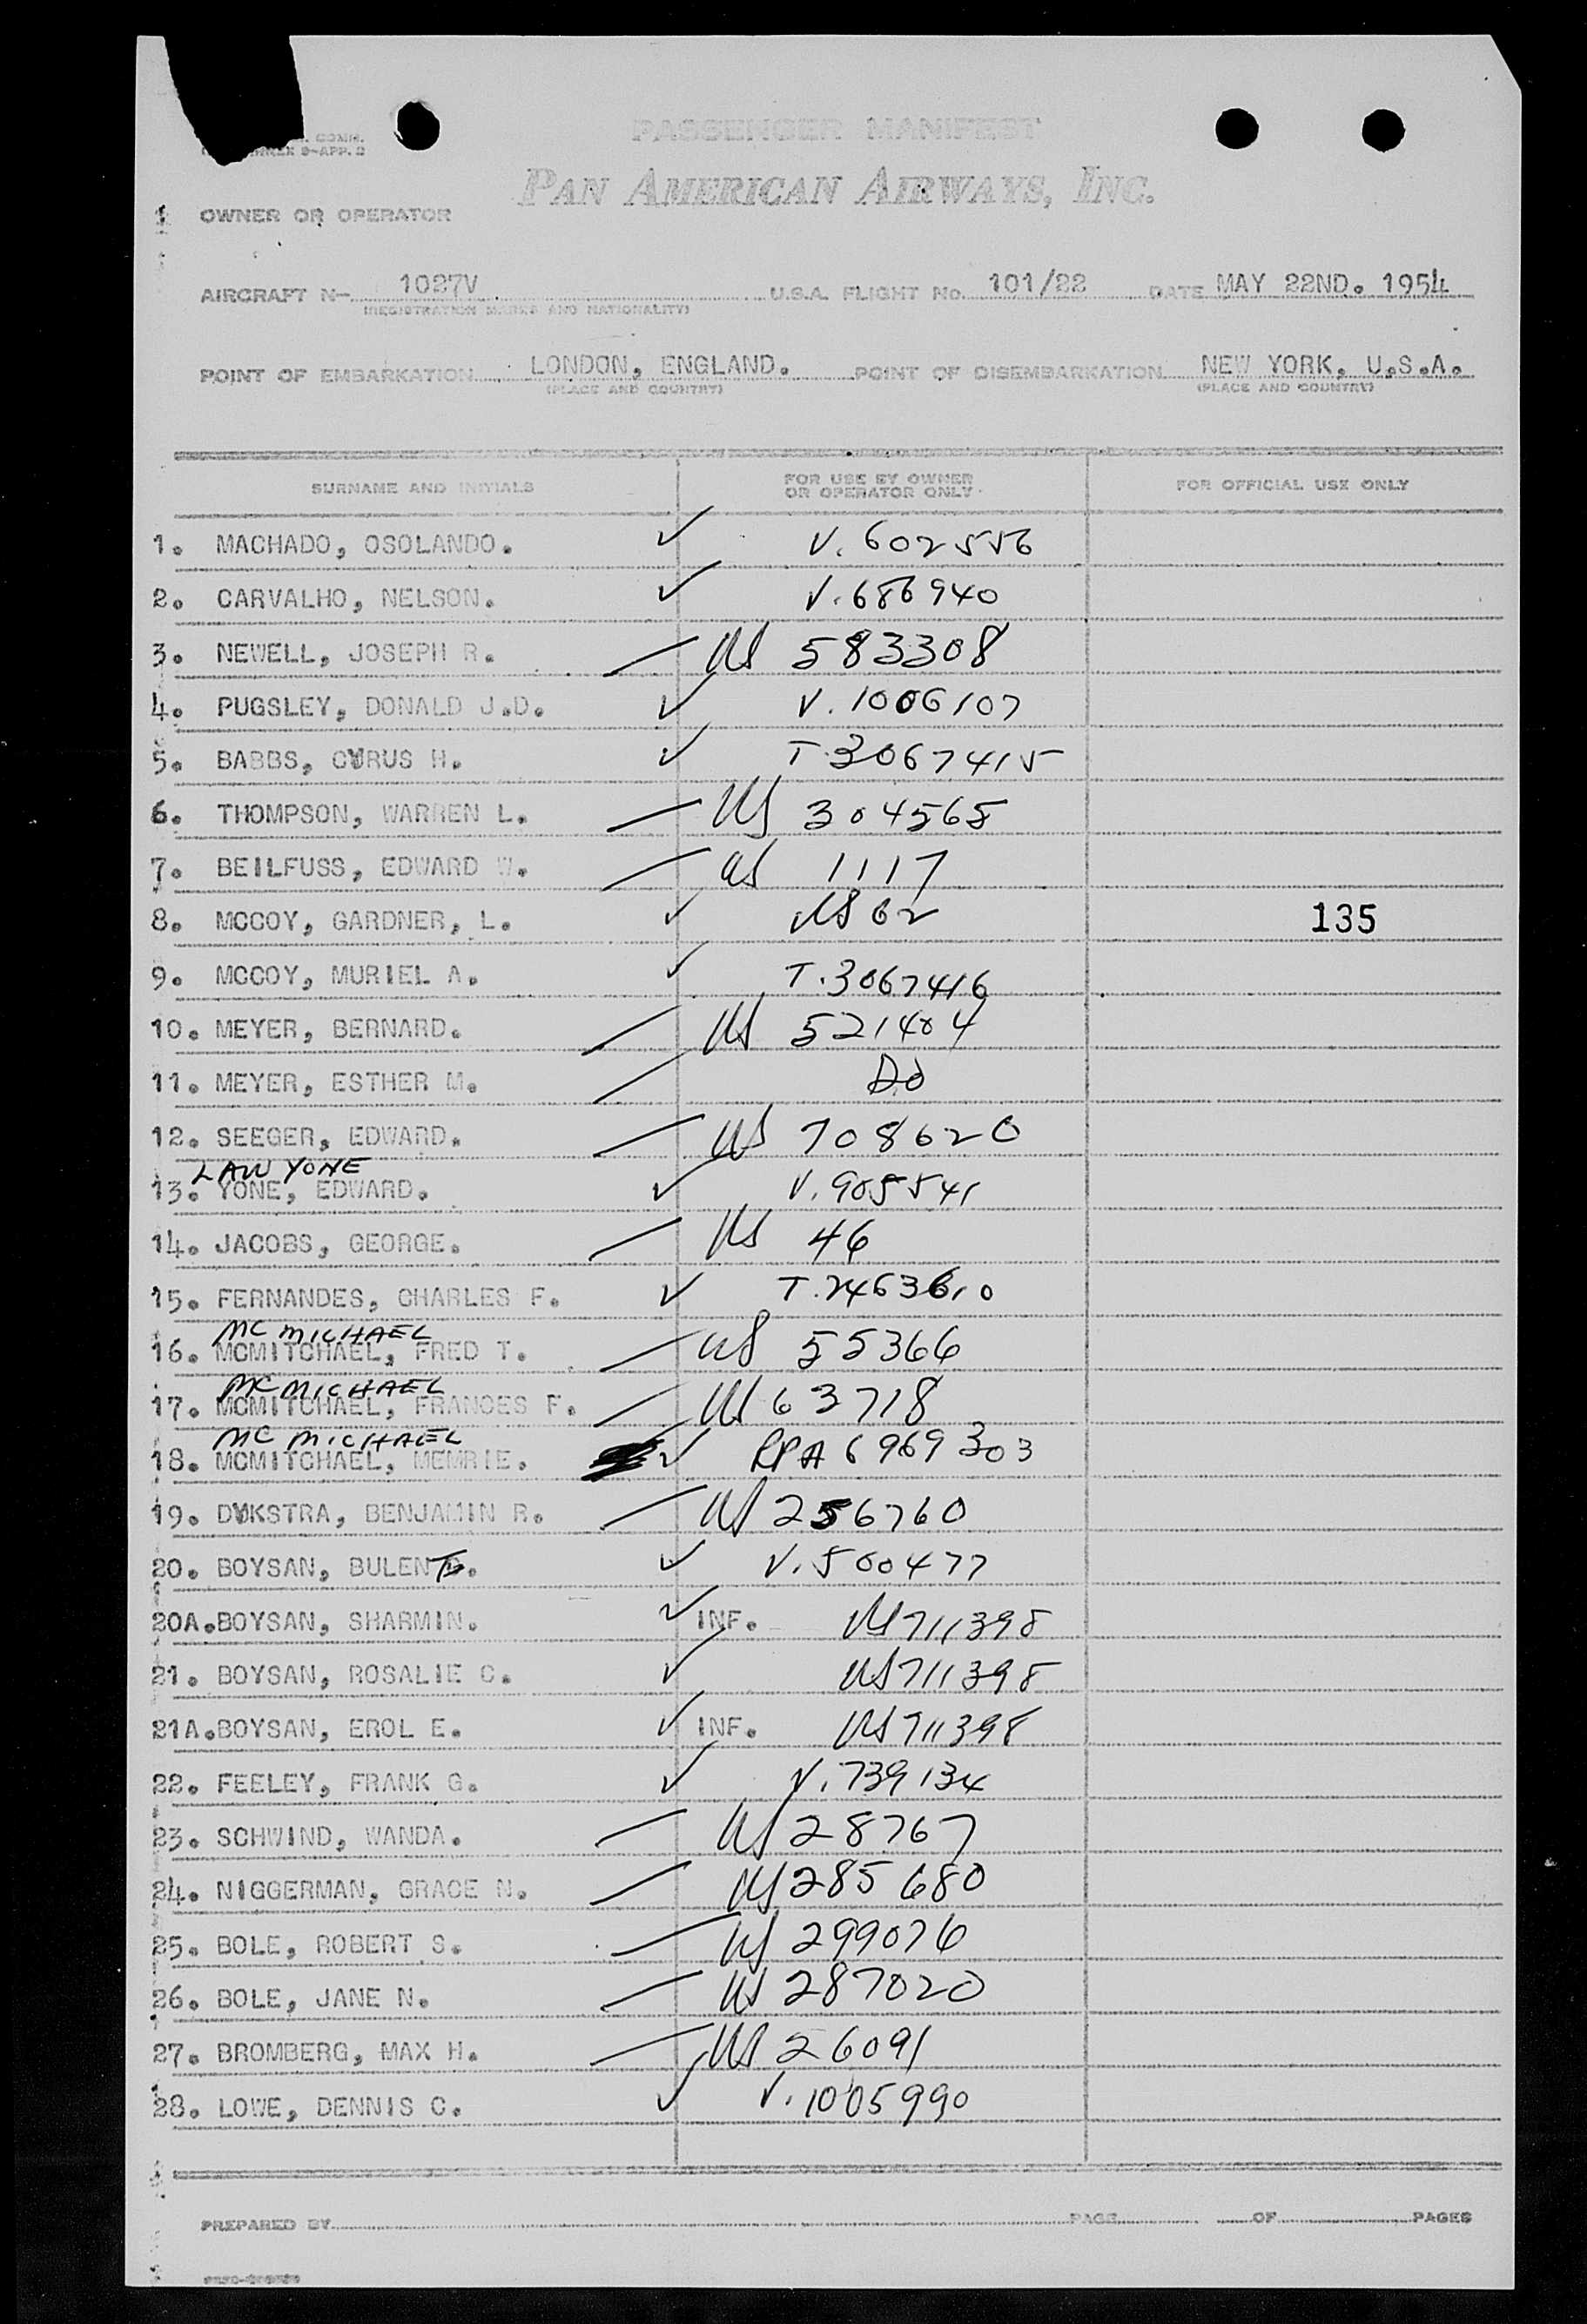 PASSENGER MANIFEST
PAN AMERICAN AIRWAYS, INC.
OWNER OR OPERATOR
AIRCRAFT N- 1027V U.S.A. FLIGHT NO. 101/22 DATE MAY 22ND. 1954
(REGISTRATION MARKS AND NATIONALITY)
POINT OF EMBARKATION LONDON, ENGLAND. POINT OF DISEMBARKATION NEW YORK, U.S.A.
(PLACE AND COUNTRY) (PLACE AND COUNTRY)
SURNAME AND INITIALS FOR USE BY OWNER OR OPERATOR ONLY. FOR OFFICIAL USE ONLY
1. MACHADO, OSOLANDO. ✓ V. 602556
2. CARVALHO, NELSON. ✓ V. 686940
3. NEWELL, JOSEPH R. US 583308
4. PUGSLEY, DONALD J.D. ✓ V. 1006107
5. BABBS, CYRUS H. ✓ T. 3067415
6. THOMPSON, WARREN L. US 304565
7. BEILFUSS, EDWARD W. US 1117
8. MCCOY, GARDNER, L. ✓ US 62 135
9. MCCOY, MURIEL A. ✓ T. 3067416
10. MEYER, BERNARD. US 521404
11. MEYER, ESTHER M. DO
12. SEEGER, EDWARD. US 708620
LAW YONE
13. YONE, EDWARD. ✓ V. 905541
14. JACOBS, GEORGE. US 46
15. FERNANDES, CHARLES F. ✓ T. 2463610
MC MICHAEL
16. MCMITCHAEL, FRED T. US 55366
MC MICHAEL
17. MCMITCHAEL, FRANCES F. US 63718
MC MICHAEL
18. MCMITCHAEL, MEMRIE. ✓ RPA 6969303
19. DYKSTRA, BENJAMIN R. US 256760
20. BOYSAN, BULENT. ✓ V. 500477
20A. BOYSAN, SHARMIN. ✓ INF. US 711398
21. BOYSAN, ROSALIE C. ✓ US 711398
21A. BOYSAN, EROL E. ✓ INF. US 711398
22. FEELEY, FRANK G. ✓ V. 739134
23. SCHWIND, WANDA. US 28767
24. NIGGERMAN, GRACE N. US 285680
25. BOLE, ROBERT S. US 299076
26. BOLE, JANE N. US 287020
27. BROMBERG, MAX H. US 26091
28. LOWE, DENNIS C. ✓ V. 1005990
PREPARED BY PAGE OF PAGES